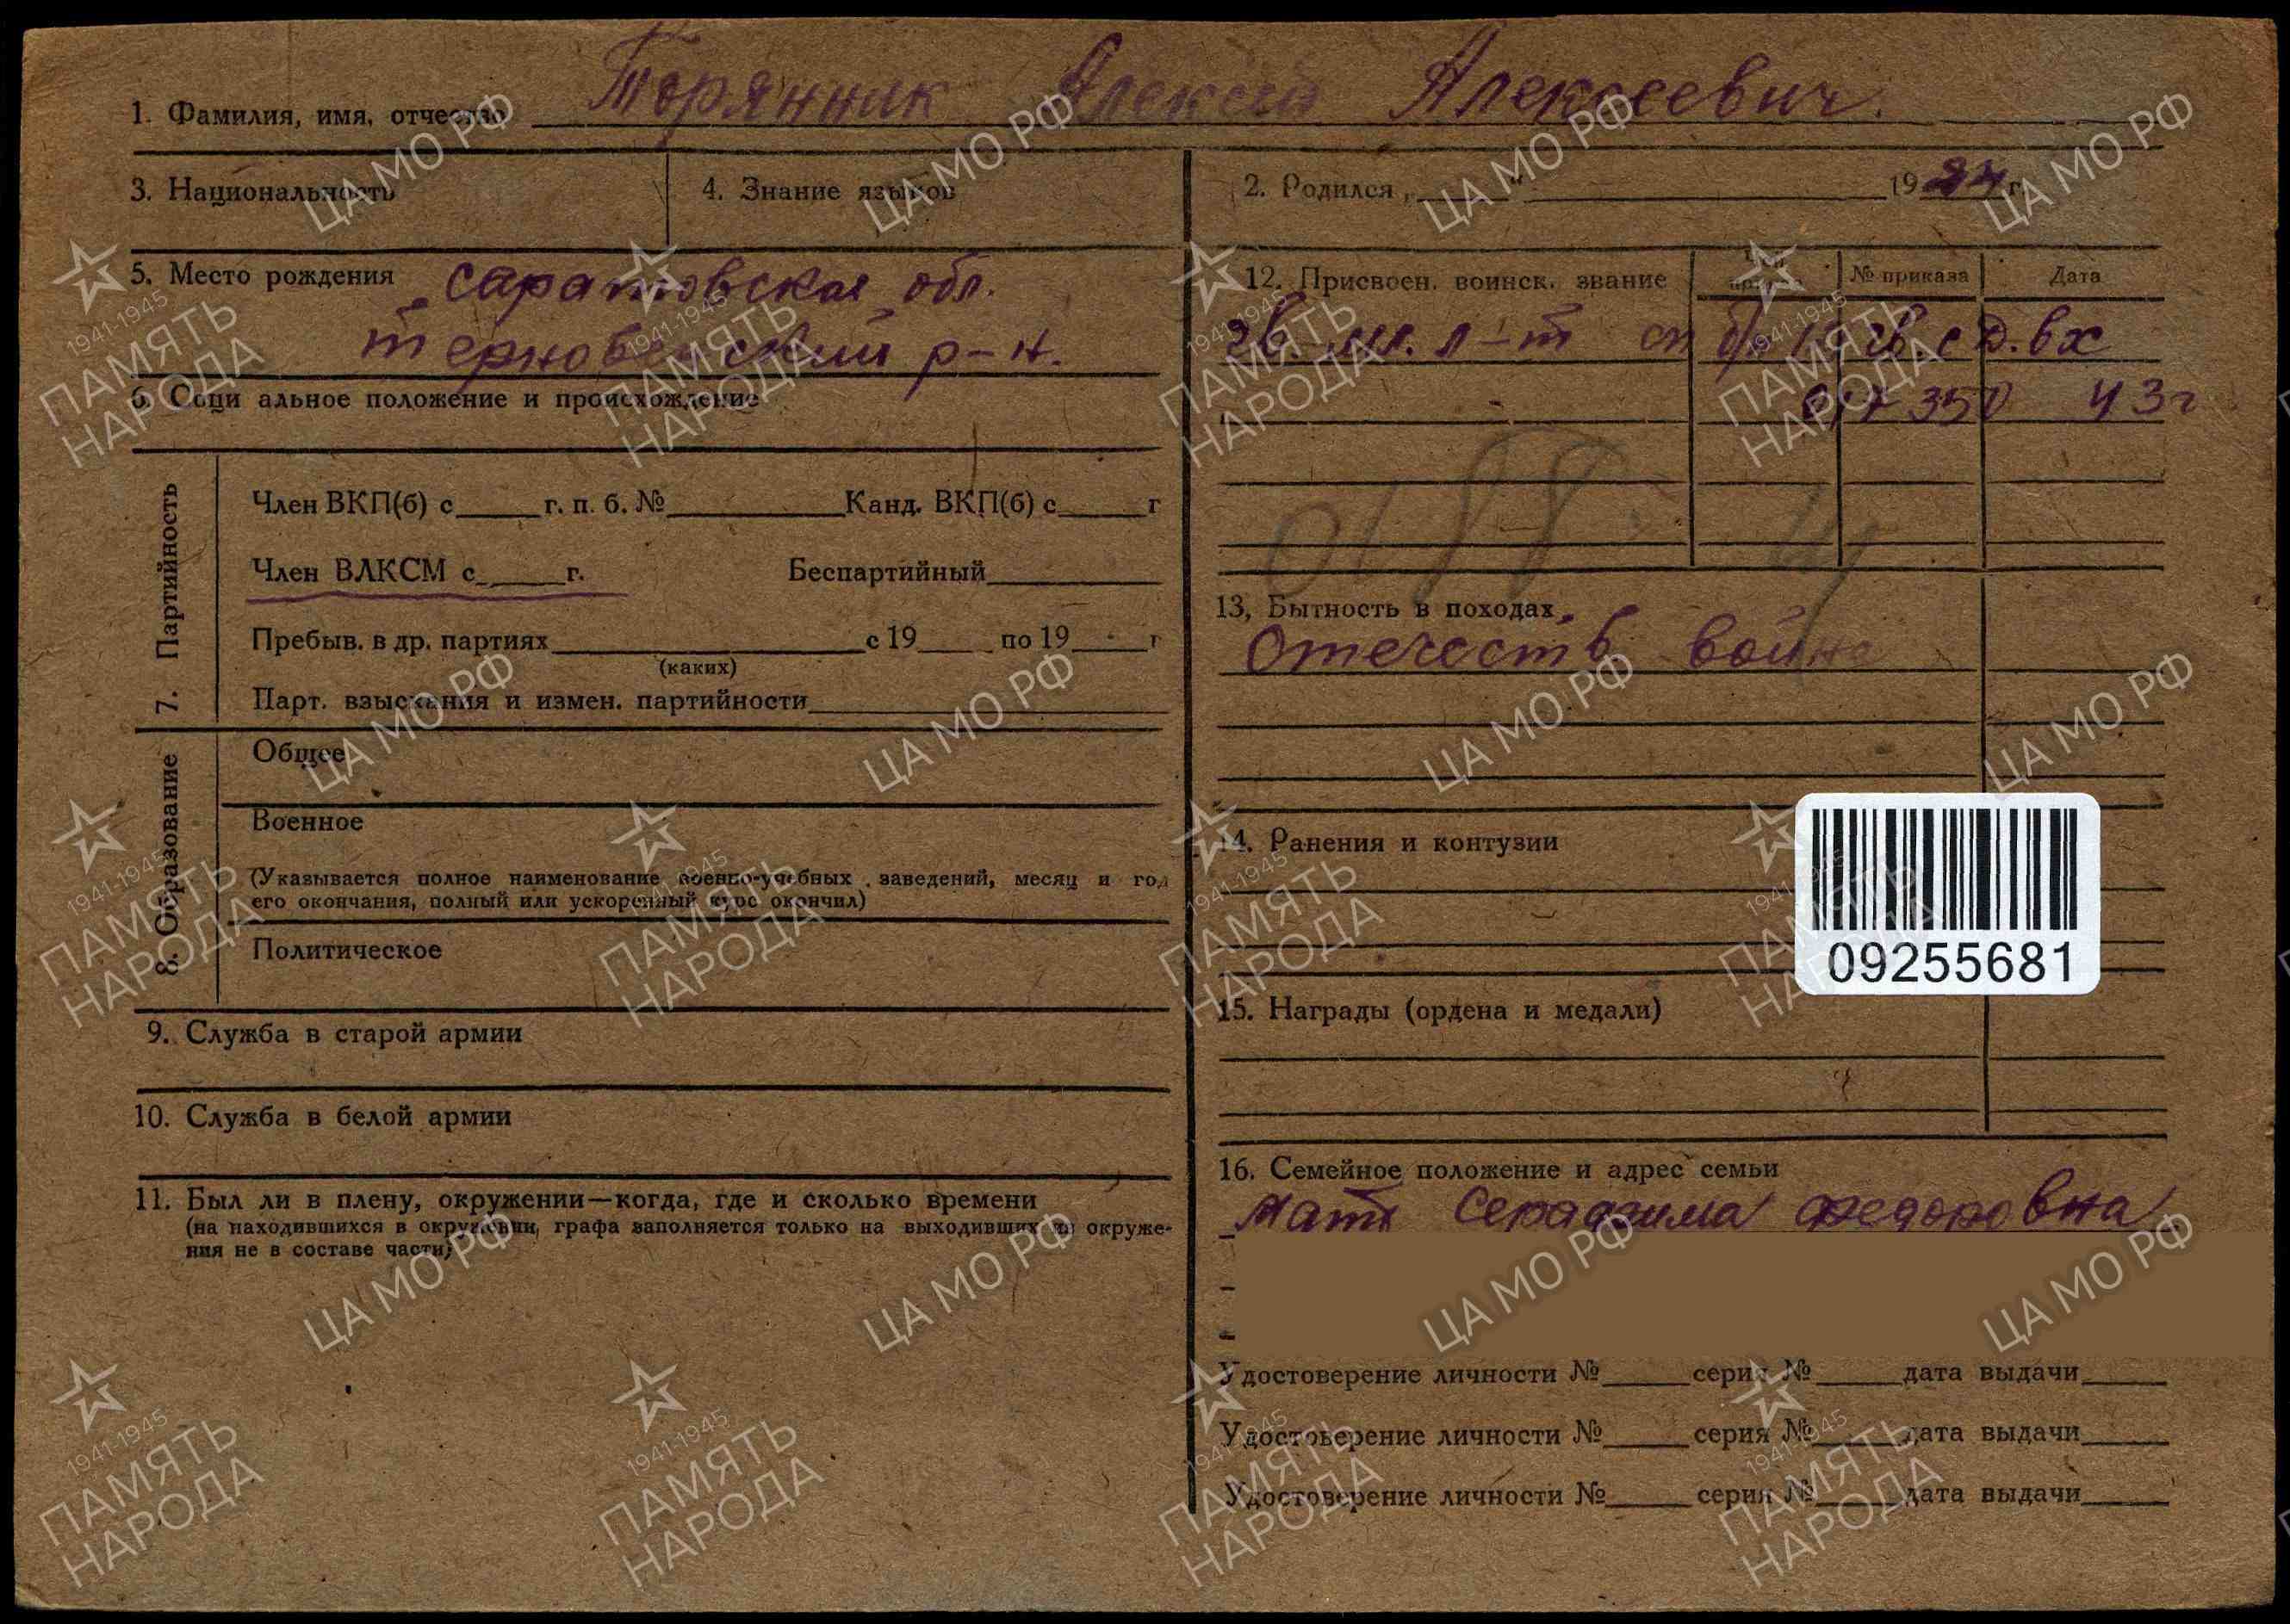 1. Фамилия, имя, отчество Торянник Алексей Алексеевич.
3. Национальность
4. Знание языков
2. Родился „ " 1924 г.
5. Место рождения Саратовская обл.
терновский р-н.
6. Соци альное положение и происхождение
7. Партийность
Член ВКП(б) с г. п. б. № Канд. ВКП(б) с г
Член ВЛКСМ с г. Беспартийный
Пребыв. в др. партиях с 19 по 19 г
(каких)
Парт. взыскания и измен. партийности
8. Образование
Общее
Военное
(Указывается полное наименование военно-учебных заведений, месяц и год
его окончания, полный или ускоренный курс окончил)
Политическое
9. Служба в старой армии
10. Служба в белой армии
11. Был ли в плену, окружении—когда, где и сколько времени
(на находившихся в окружении, графа заполняется только на выходивших из окруже-
ния не в составе части)
12. Присвоен. воинск. звание № приказа Дата
гв. мл. л-т гв. с д. вх
350 43г
13, Бытность в походах
Отечеств война
14. Ранения и контузии
09255681
15. Награды (ордена и медали)
16. Семейное положение и адрес семьи
мать Серафима Федоровна
Удостоверение личности № серия № дата выдачи
Удостоверение личности № серия № дата выдачи
Удостоверение личности № серия № дата выдачи
ЦА МО РФ
1941-1945
ПАМЯТЬ
НАРОДА